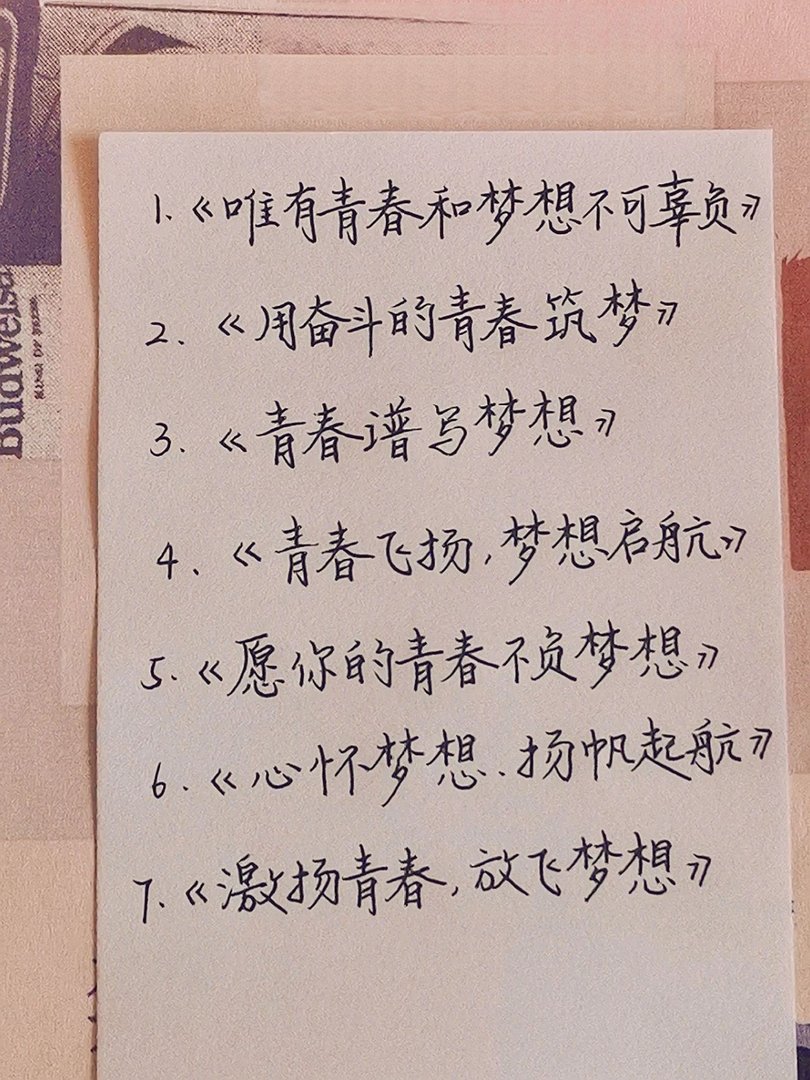 Budweise
KING OF BEERS
1.《唯有青春和梦想不可辜负》
2.《用奋斗的青春筑梦》
3.《青春谱写梦想》
4.《青春飞扬,梦想启航》
5.《愿你的青春不负梦想》
6.《心怀梦想.扬帆起航》
7.《激扬青春,放飞梦想》